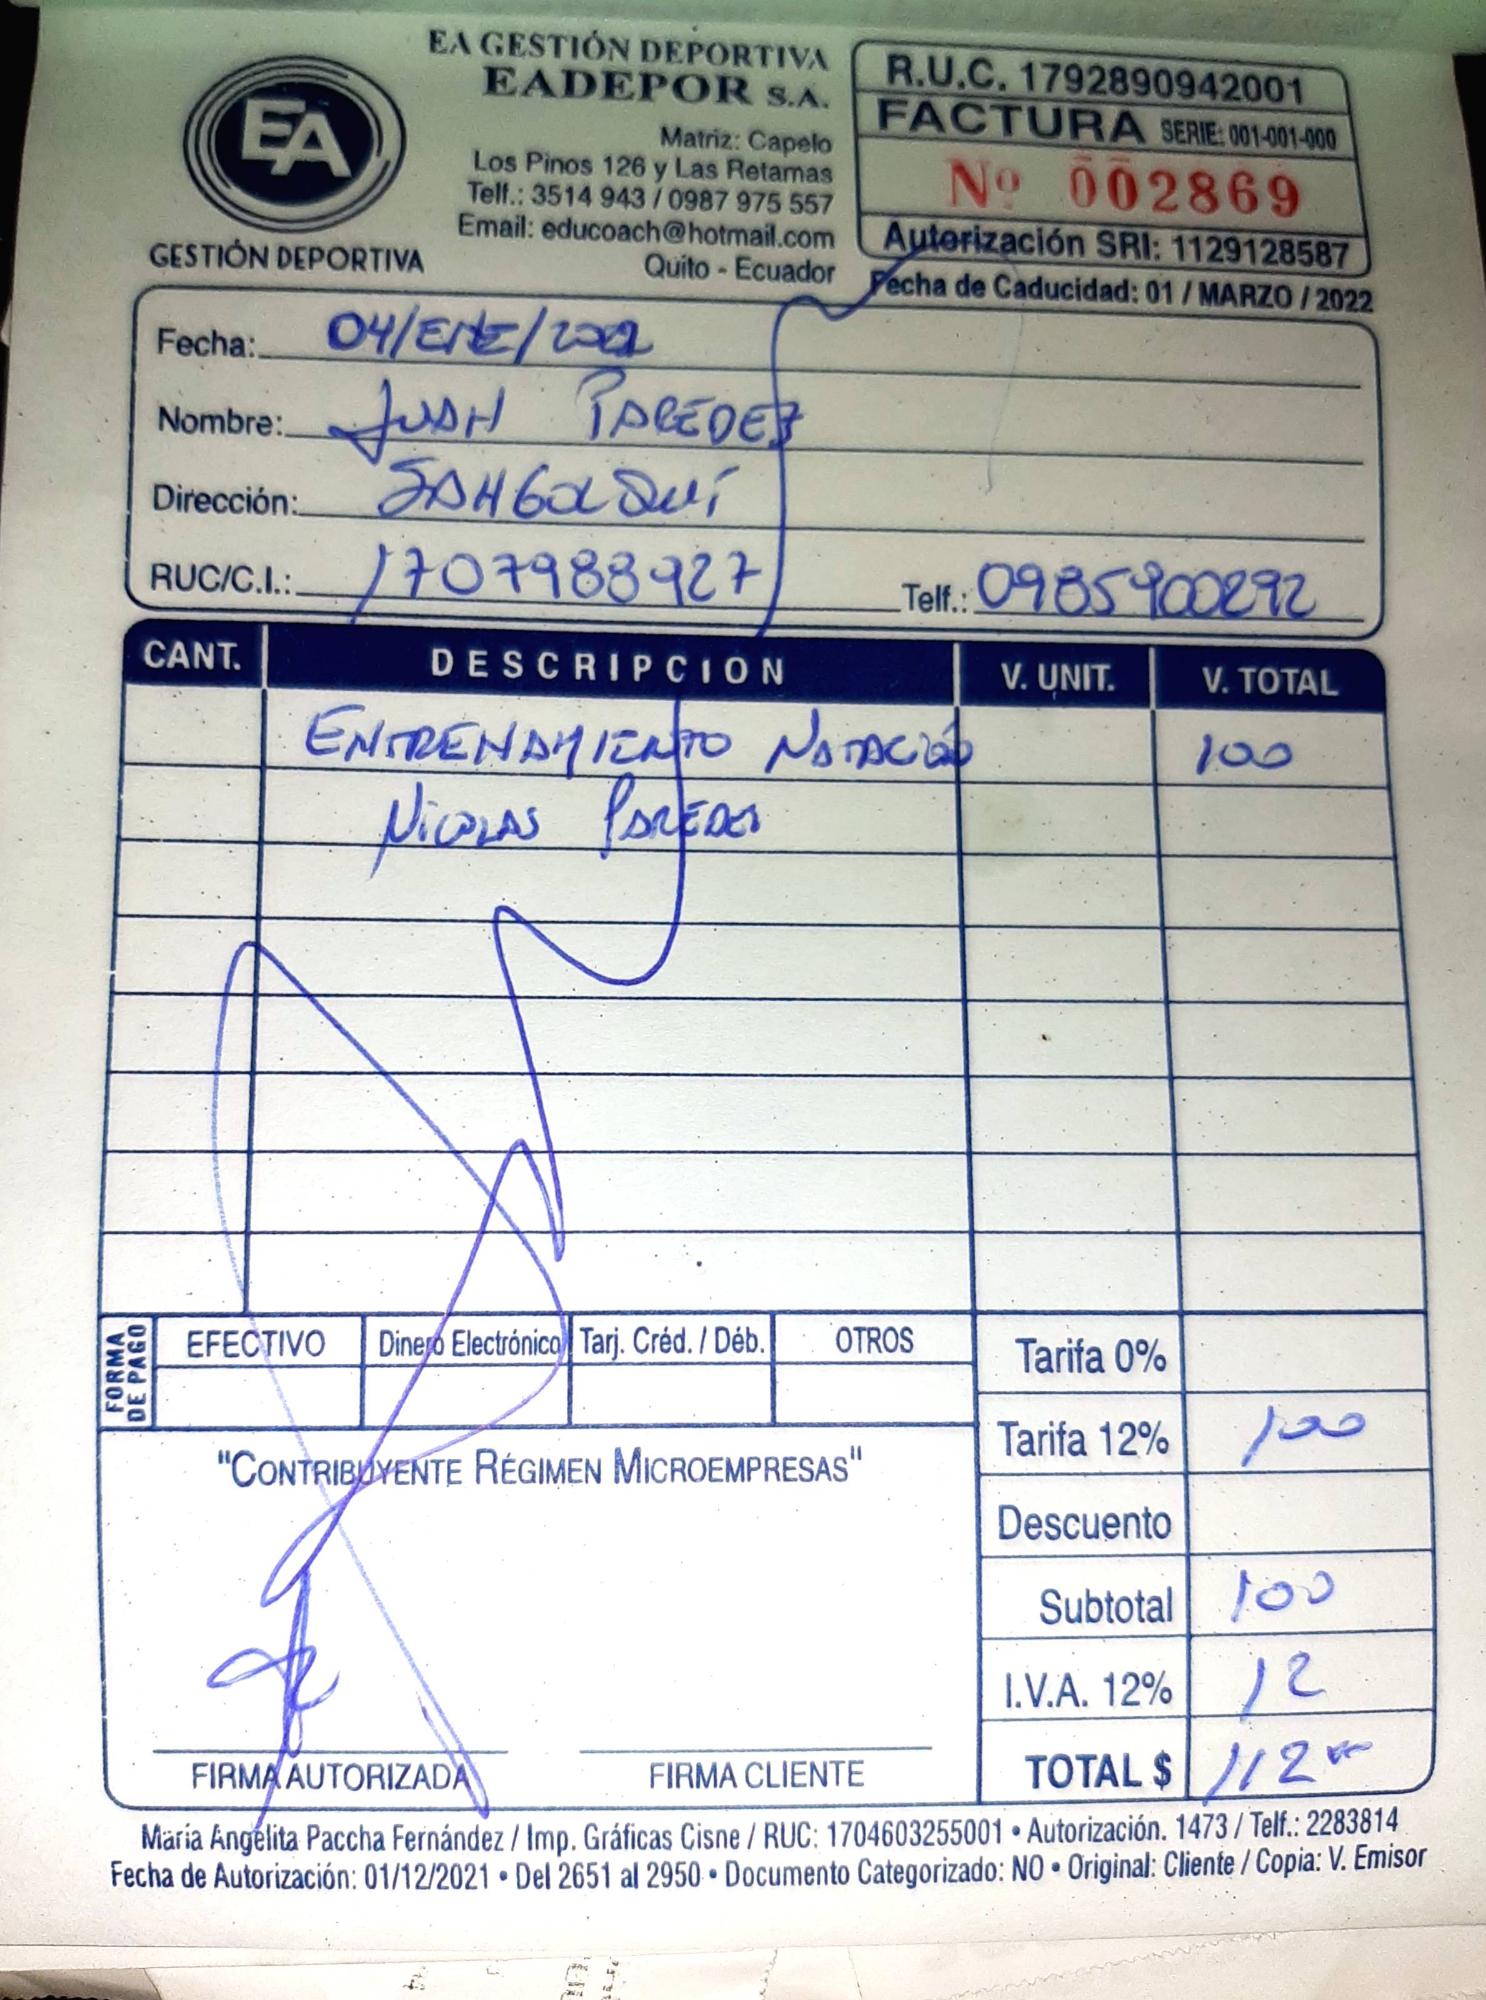 EA GESTIÓN DEPORTIVA
EADEPOR S.A.
Matriz: Capelo
Los Pinos 126 y Las Retamas
Telf.: 3514 943 / 0987 975 557
Email: educoach@hotmail.com
Quito - Ecuador
EA
GESTIÓN DEPORTIVA
R.U.C. 1792890942001
FACTURA SERIE: 001-001-000
Nº 002869
Autorización SRI: 1129128587
Fecha de Caducidad: 01 / MARZO / 2022
Fecha: 04/ENE/2022
Nombre: JUAN PAREDES
Dirección: SANGOLQUÍ
RUC/C.I.: 1707988927 Telf.: 0985900292
CANT. DESCRIPCION V. UNIT. V. TOTAL
ENTRENAMIENTO NATACIÓN 100
NICOLAS PAREDES
FORMA DE PAGO
EFECTIVO Dinero Electrónico Tarj. Créd. / Déb. OTROS
Tarifa 0%
Tarifa 12% 100
"CONTRIBUYENTE RÉGIMEN MICROEMPRESAS"
Descuento
Subtotal 100
I.V.A. 12% 12
TOTAL $ 112
FIRMA AUTORIZADA FIRMA CLIENTE
María Angelita Paccha Fernández / Imp. Gráficas Cisne / RUC: 1704603255001 • Autorización. 1473 / Telf.: 2283814
Fecha de Autorización: 01/12/2021 • Del 2651 al 2950 • Documento Categorizado: NO • Original: Cliente / Copia: V. Emisor